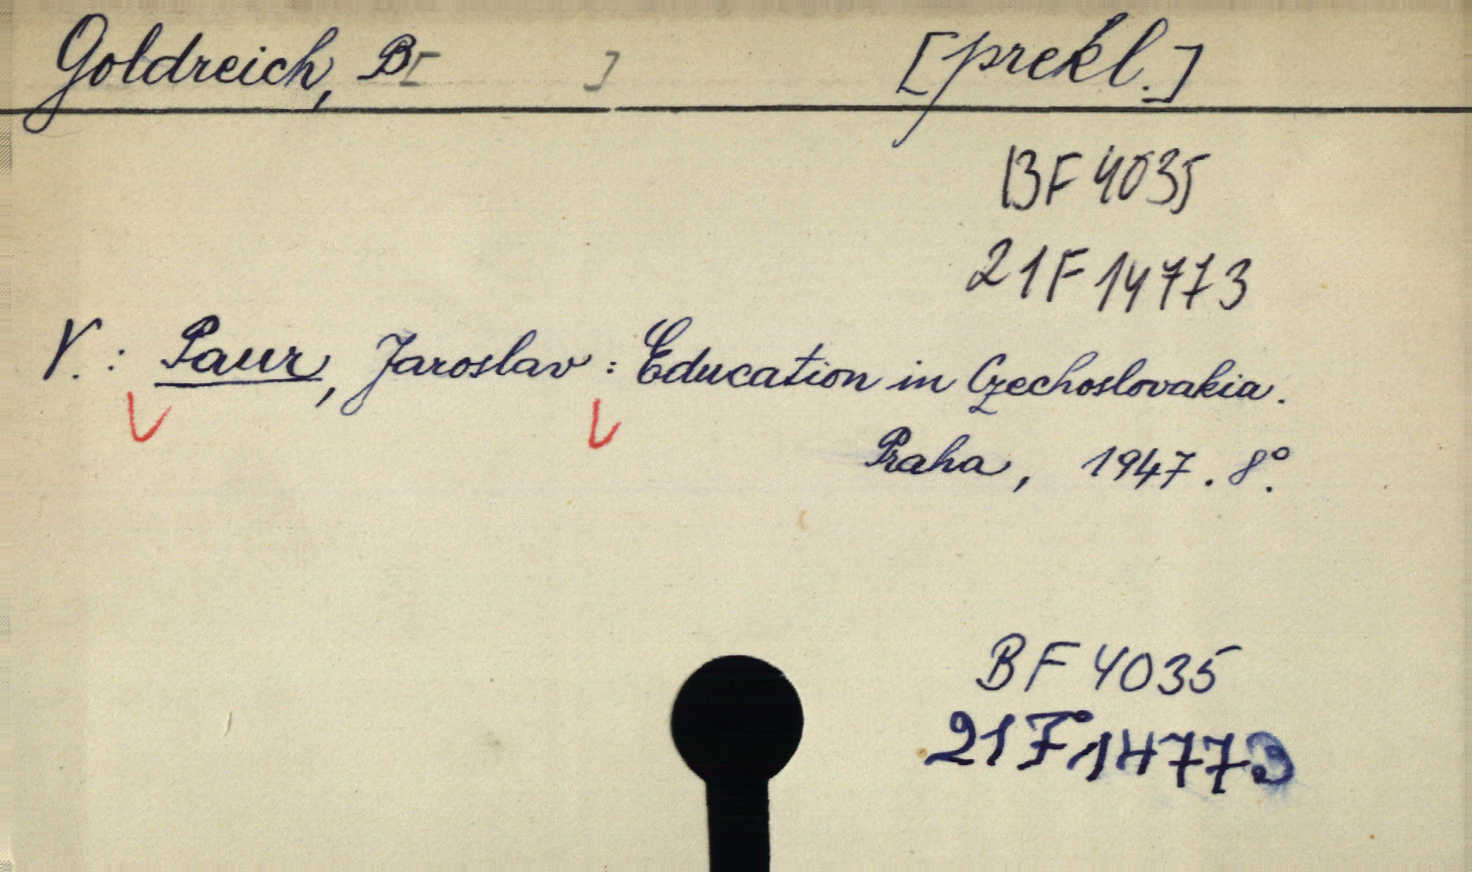 Goldreich, B[ ] [prekl.]
BF 4035
21F 14773
V.: Paur, Jaroslav: Education in Czechoslovakia.
Praha, 1947. 8°.
BF 4035
21F14773